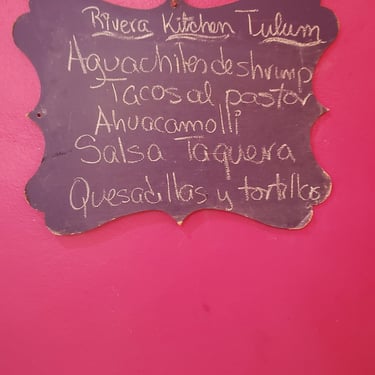 Rivera Kitchen Tulum
Aguachiles de shrimp
Tacos al pastor
Ahuacamolli
Salsa Taquera
Quesadillas y tortillas